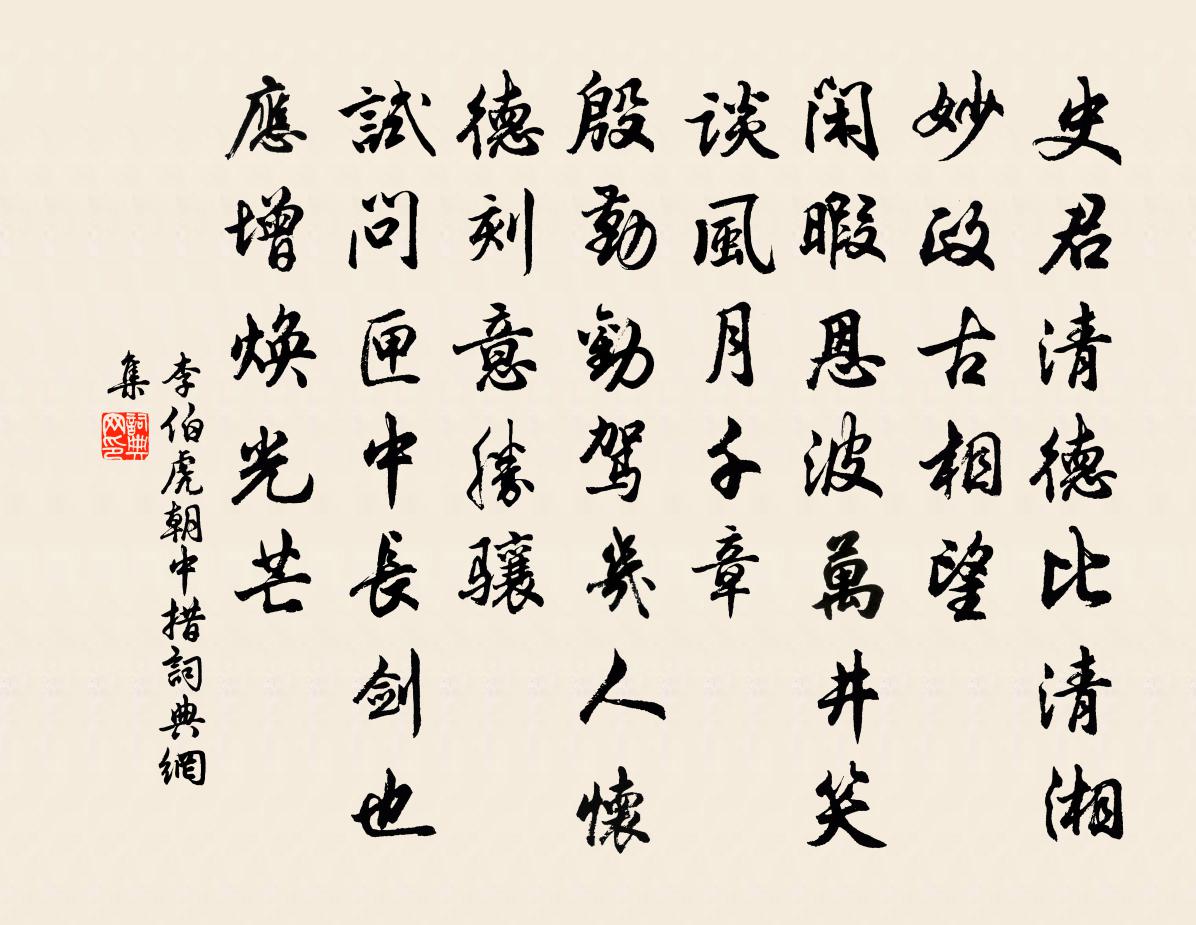 史君清德比清湘
妙政古相望
閑暇恩波萬井笑
談風月千章
殷勤勸駕幾人懷
德刻意勝驤
試問匣中長劍也
應增煥光芒
李伯虎朝中措詞典網
集
詞典
网印